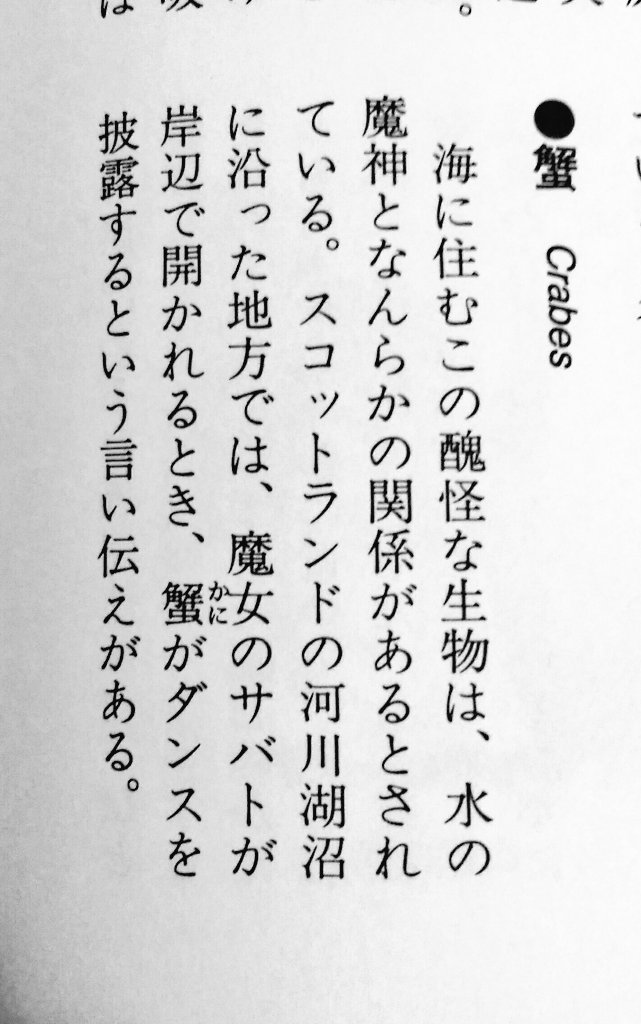 ●蟹 Crabes
海に住むこの醜怪な生物は、水の
魔神となんらかの関係があるとされ
ている。スコットランドの河川湖沼
に沿った地方では、魔女のサバトが
岸辺で開かれるとき、蟹がダンスを
かに
披露するという言い伝えがある。